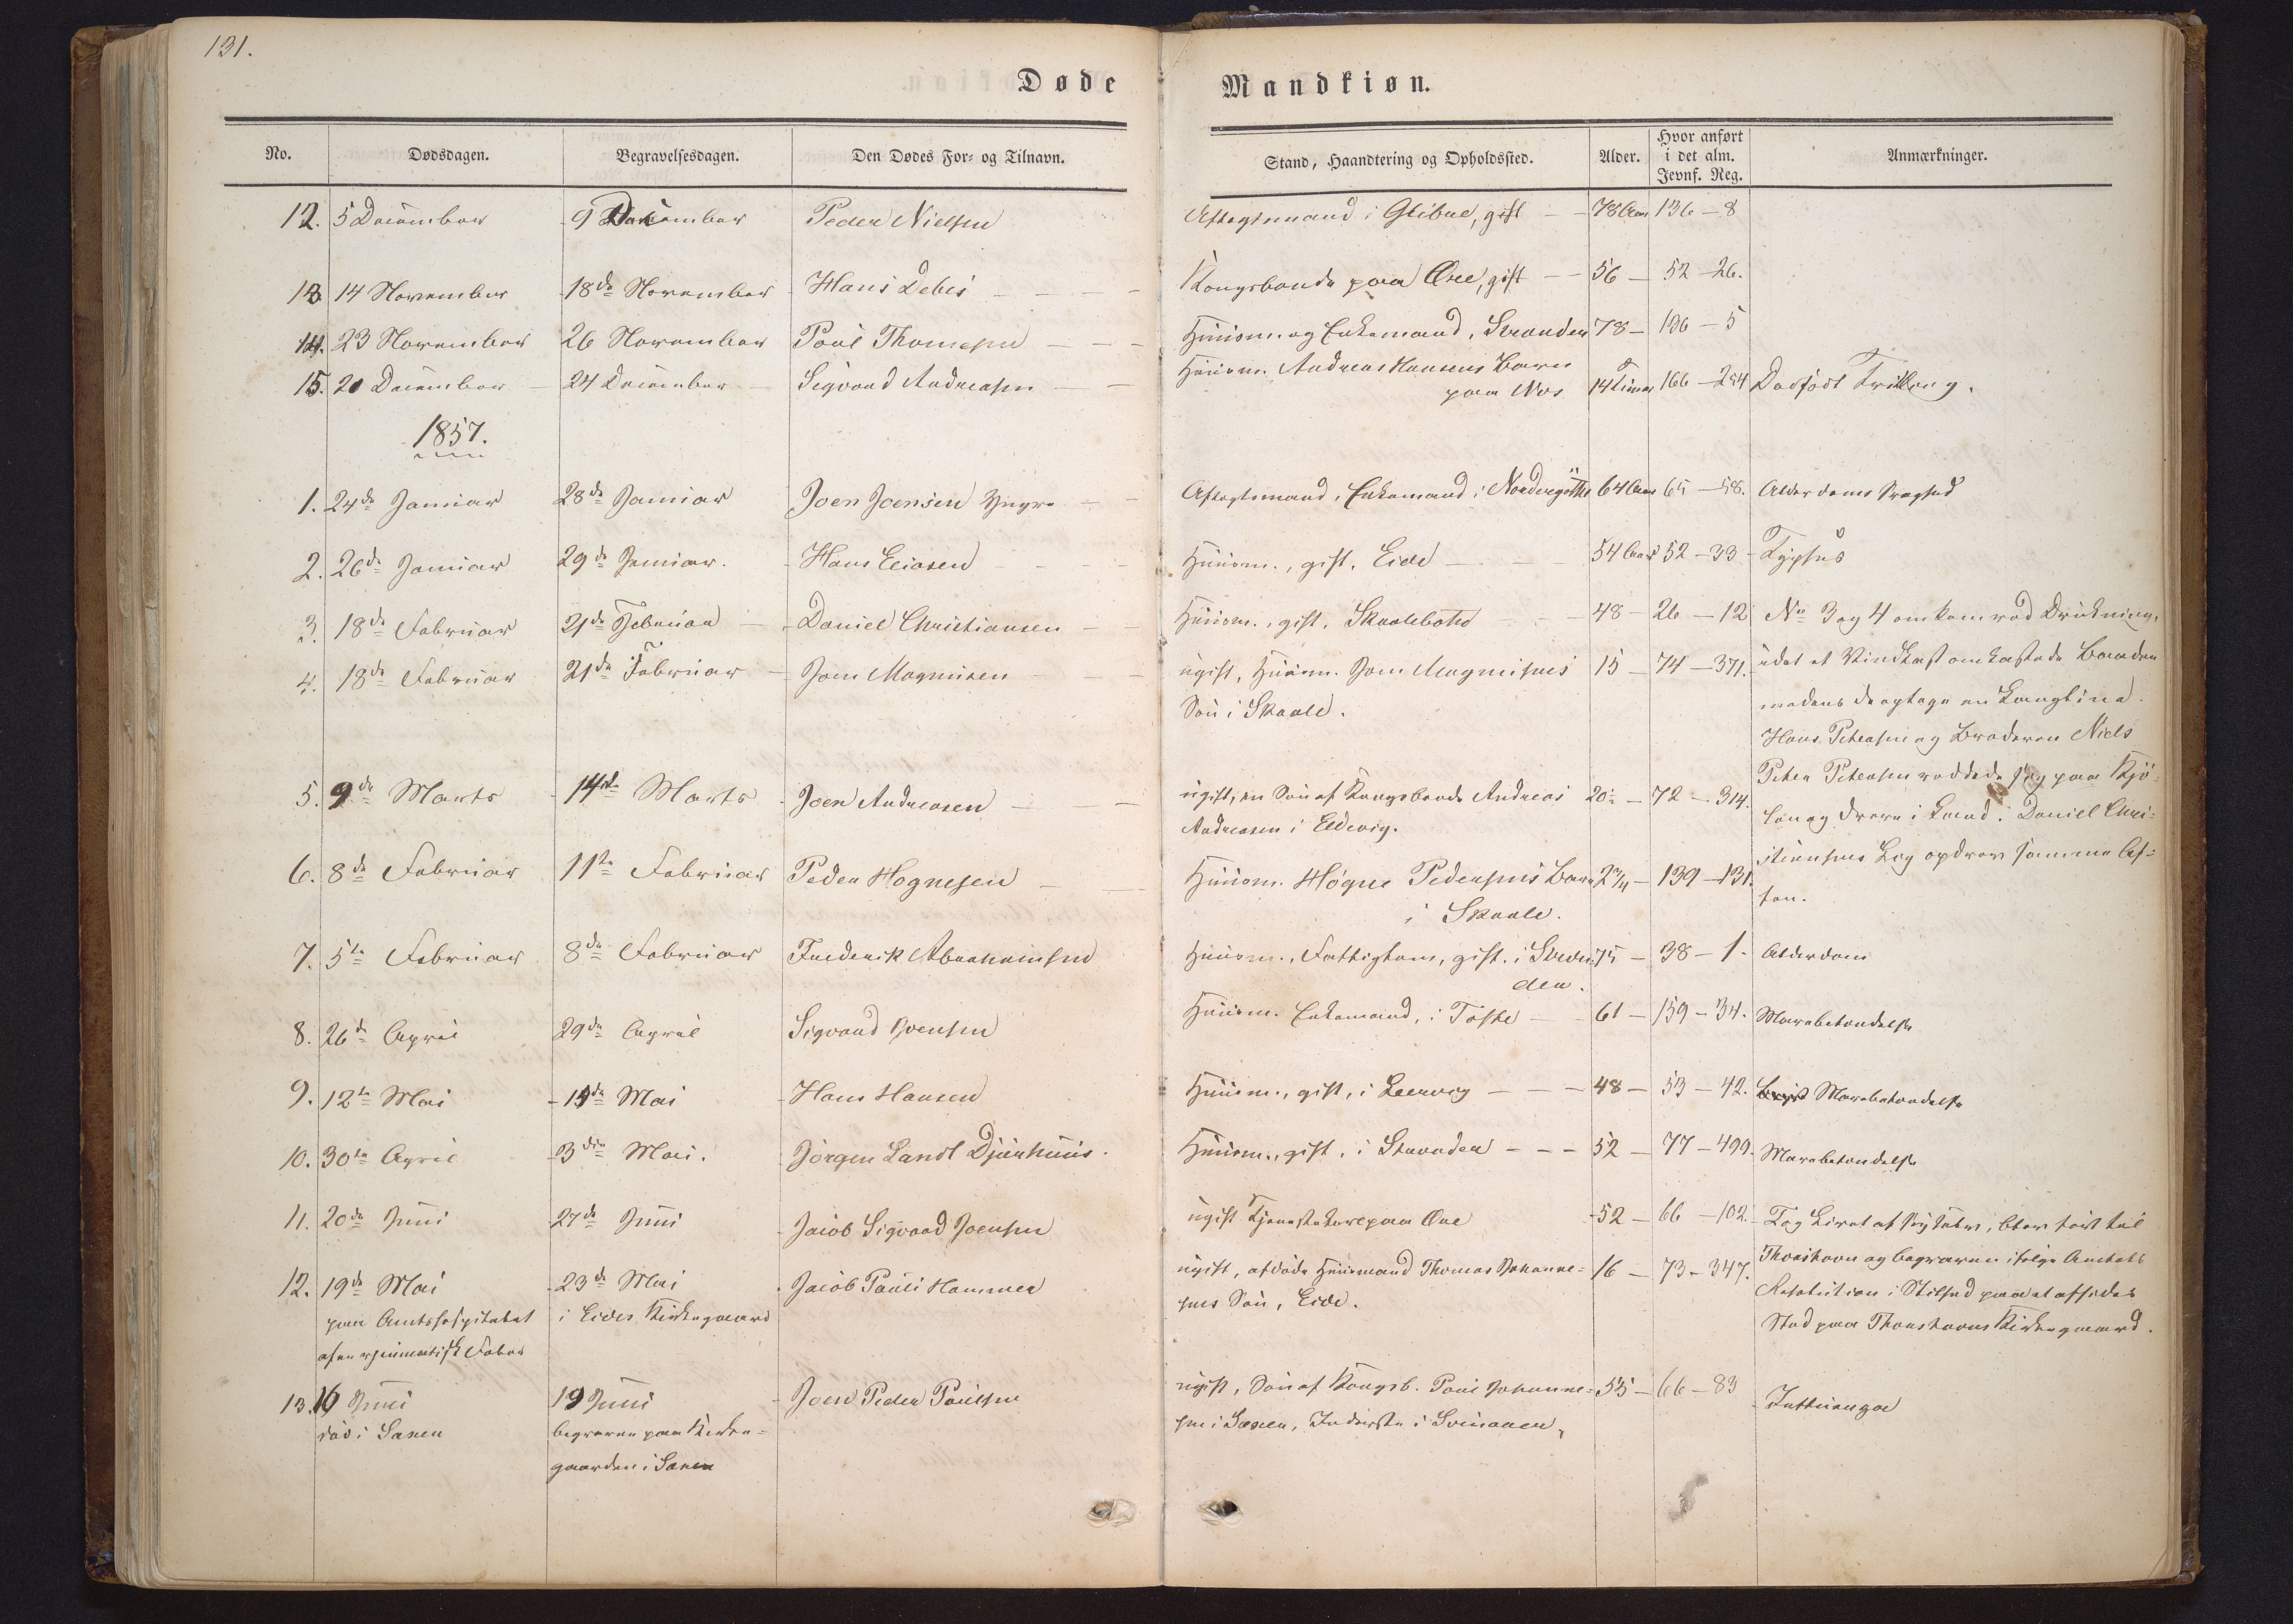 131.
Døde Mandkiøn.
No. Dødsdagen. Begravelsesdagen. Den Dødes For- og Tilnavn. Stand, Haandtering og Opholdssted. Alder. Hvor anført i det alm. Jevnf. Reg. Anmærkninger.
12. 5 December 9 December Peder Nielsen Aftægtsmand i Glibre, gift 78 Aar 136 - 8
13 14 November 18de November Hans Debes Kongsbonde paa Øre, gift 56 52 - 26.
14. 23 November 26 November Poul Thomesen Huusm. og Enkemand, Strænder 78 - 186 - 5
15. 20 December 24 December Sigvard Andreasen Huusm. Andreas Hansens Barn
paa Næs 14 Timer 166 - 254 Dødfødt Tvilling.
1857.
1. 24de Januar 28de Januar Joen Joensen Aftægtsmand, Enkemand i Nordregøthe 64 Aar 65 - 58. Alderdoms Svaghed
2. 26de Januar 29de Januar. Hans Eliasen Huusm., gift, Eide 54 Aar 52 - 33 Typhus
3. 18de Februar 21de Februar Daniel Christiansen Huusm., gift, Skaalebotn 48 - 26 - 12 No 3 og 4 omkom ved Drukning,
4. 18de Februar 21de Februar Jom Magnusen ugift, Huusm. Jom Magnusens 15 - 74 - 371. idet et Vindkast omkastede Baaden
Søn i Skaale. medens de optoge en Langline.
Hans Petersen og Broderen Niels
5. 9de Marts 14de Marts Joen Andreasen ugift, en Søn af Kongsbonde Andreas 20 - 72 - 314. Peter Petersen reddede sig paa Kjø-
Andreasen i Eldevig. len og drev i Land. Daniel Chri-
6. 8de Februar 11te Februar Peder Hognesen Huusm. Høgne Pedersens Barn 2 3/4 - 139 - 131. stiansens Lig opdrev samme Af-
i Skaale. ten.
7. 5te Februar 8de Februar Frederik Abrahamsen Huusm., Fattiglem, gift, i Stren- 75 - 38 - 1. Alderdom
der.
8. 26de April 29de April Sigvard Joensen Huusm. Enkemand, i Tofte 61 - 159 - 34. Mavebetændelse
9. 12te Mai 15de Mai Hans Hansen Huusm., gift, i Leervig 48 - 53 - 42. Mavebetændelse
10. 30te April 3die Mai. Jørgen Landt Djurhuus. Huusm., gift, i Strænder 52 - 77 - 499. Mavebetændelse
11. 20de Juni 27de Juni Jacob Sigvard Joensen ugift Tjenestekarl paa Øre 52 - 66 - 102. Tog Livet af sig selv, blev ført til
Thorshavn og begraven ifølge Amtets
12. 19de Mai 23de Mai Jacob Pauli Hammer ugift, afdøde Huusmand Thomas Johanne- 16 - 73 - 347. Resolution i Stilhed paa et afsides
paa Amtshospitalet i Eides Kirkegaard sens Søn, Eide. Sted paa Thorshavns Kirkegaard.
af en rheumatisk Feber
13. 16 Juni 19 Juni Joen Peder Poulsen ugift, Søn af Kongsb. Poul Johanne- 55 - 66 - 83
død i Lamen begraven paa Kirke- sen i Lamen, Inderste i Svinaaen.
gaarden i Lamen